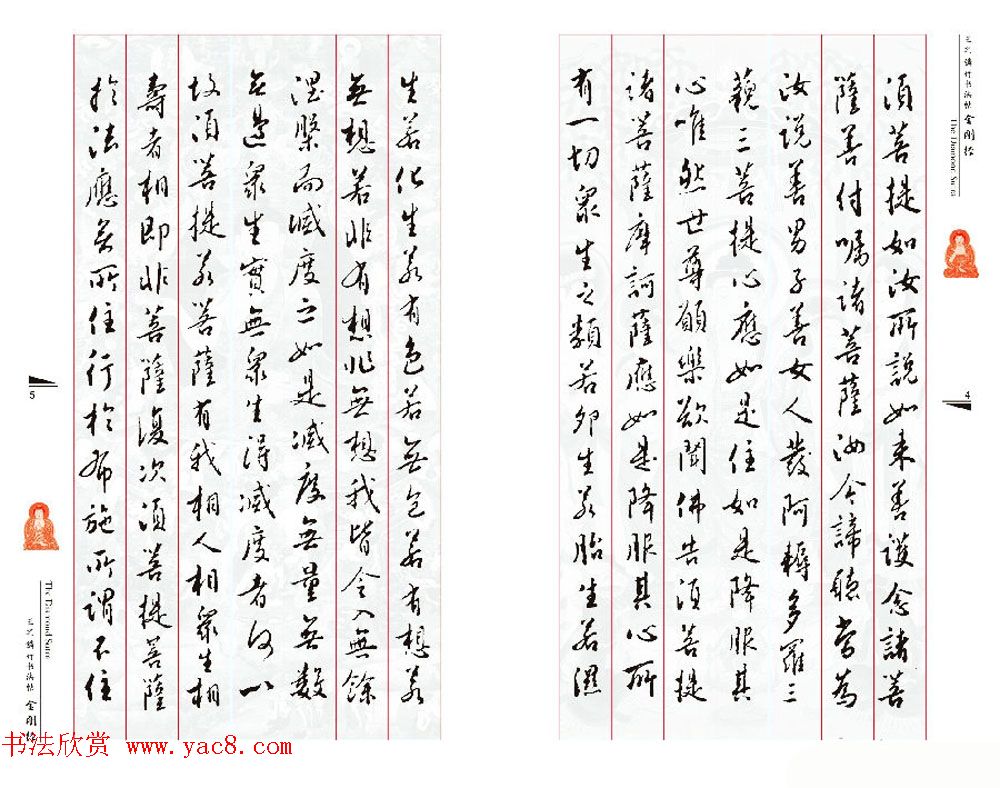 金剛經
The Diamond Sutra
4
須菩提如汝所說如來善護念諸菩
薩善付囑諸菩薩汝今諦聽當為
汝說善男子善女人發阿耨多羅三
藐三菩提心應如是住如是降服其
心唯然世尊願樂欲聞佛告須菩提
諸菩薩摩訶薩應如是降服其心所
有一切眾生之類若卵生若胎生若濕
生若化生若有色若無色若有想若
無想若非有想非無想我皆令入無餘
涅槃而滅度之如是滅度無量無數
無邊眾生實無眾生得滅度者何以
故須菩提若菩薩有我相人相眾生相
壽者相即非菩薩復次須菩提菩薩
於法應無所住行於布施所謂不住
5
The Diamond Sutra
金剛經
书法欣赏 www.yac8.com